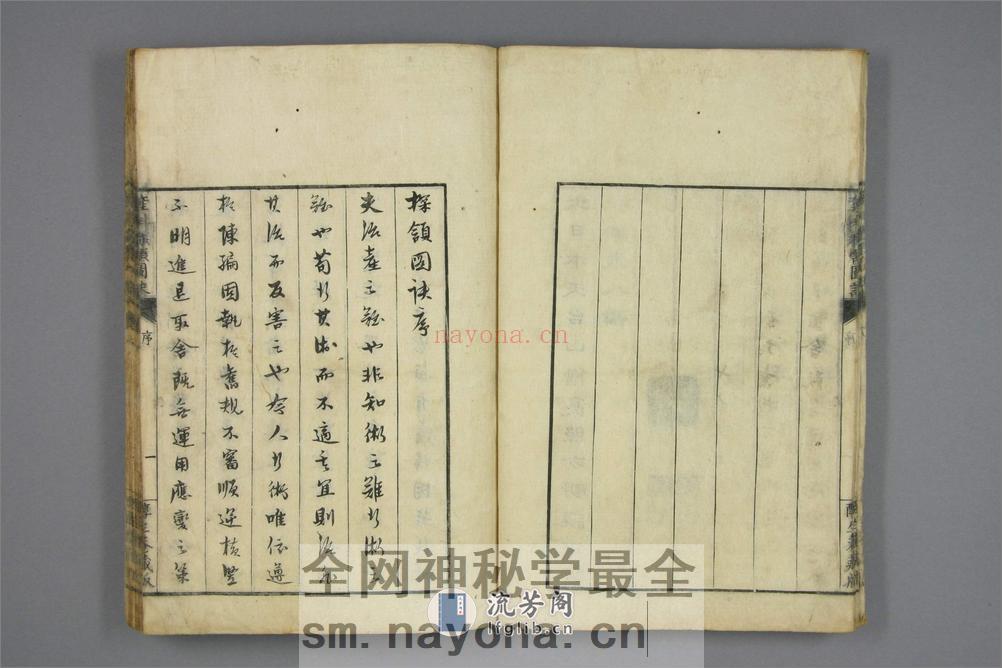 探領図訣序
夫治産之難也非知術之難行術之
難也苟行其術而不適其宜則治
其治而反害之也今人行術唯依遵
於陳編固執於舊規不審順逆横竪
不明進退取舍既無運用應變之策
序
一
nayona.cn
全网神秘学最全
流芳阁
lfglib.cn
sm.nayona.cn